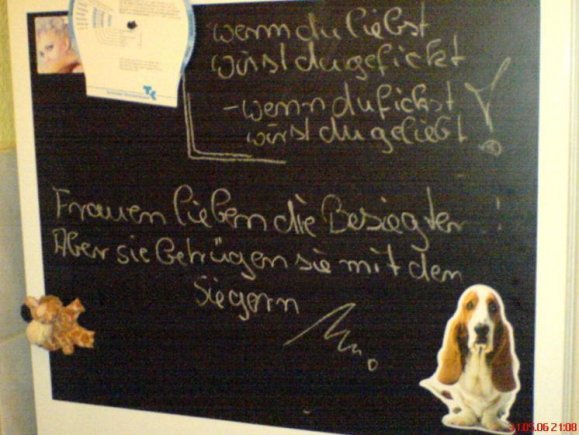 wenn du liebst
wirst du gefickt
- wenn du fickst
wirst du geliebt!
TK
Frauen lieben die Besiegten!
Aber sie betrügen sie mit den
Siegern
31.05.06 21:08